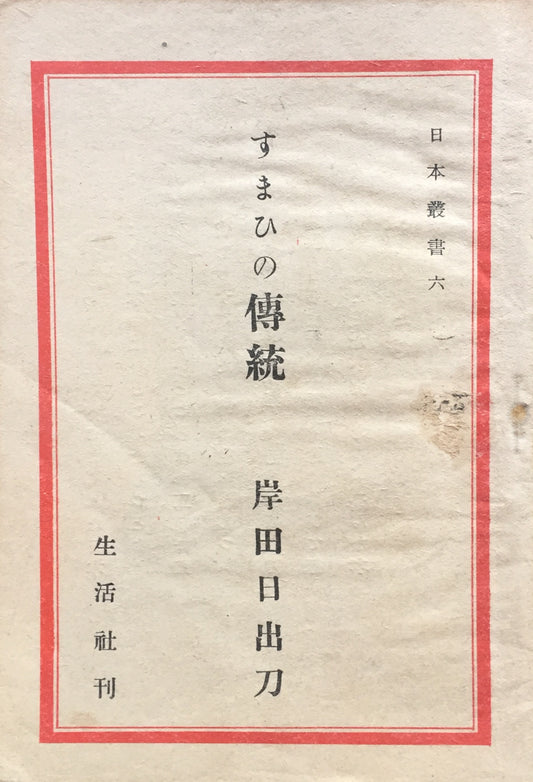 日本叢書六
すまひの傳統　岸田日出刀
生活社刊